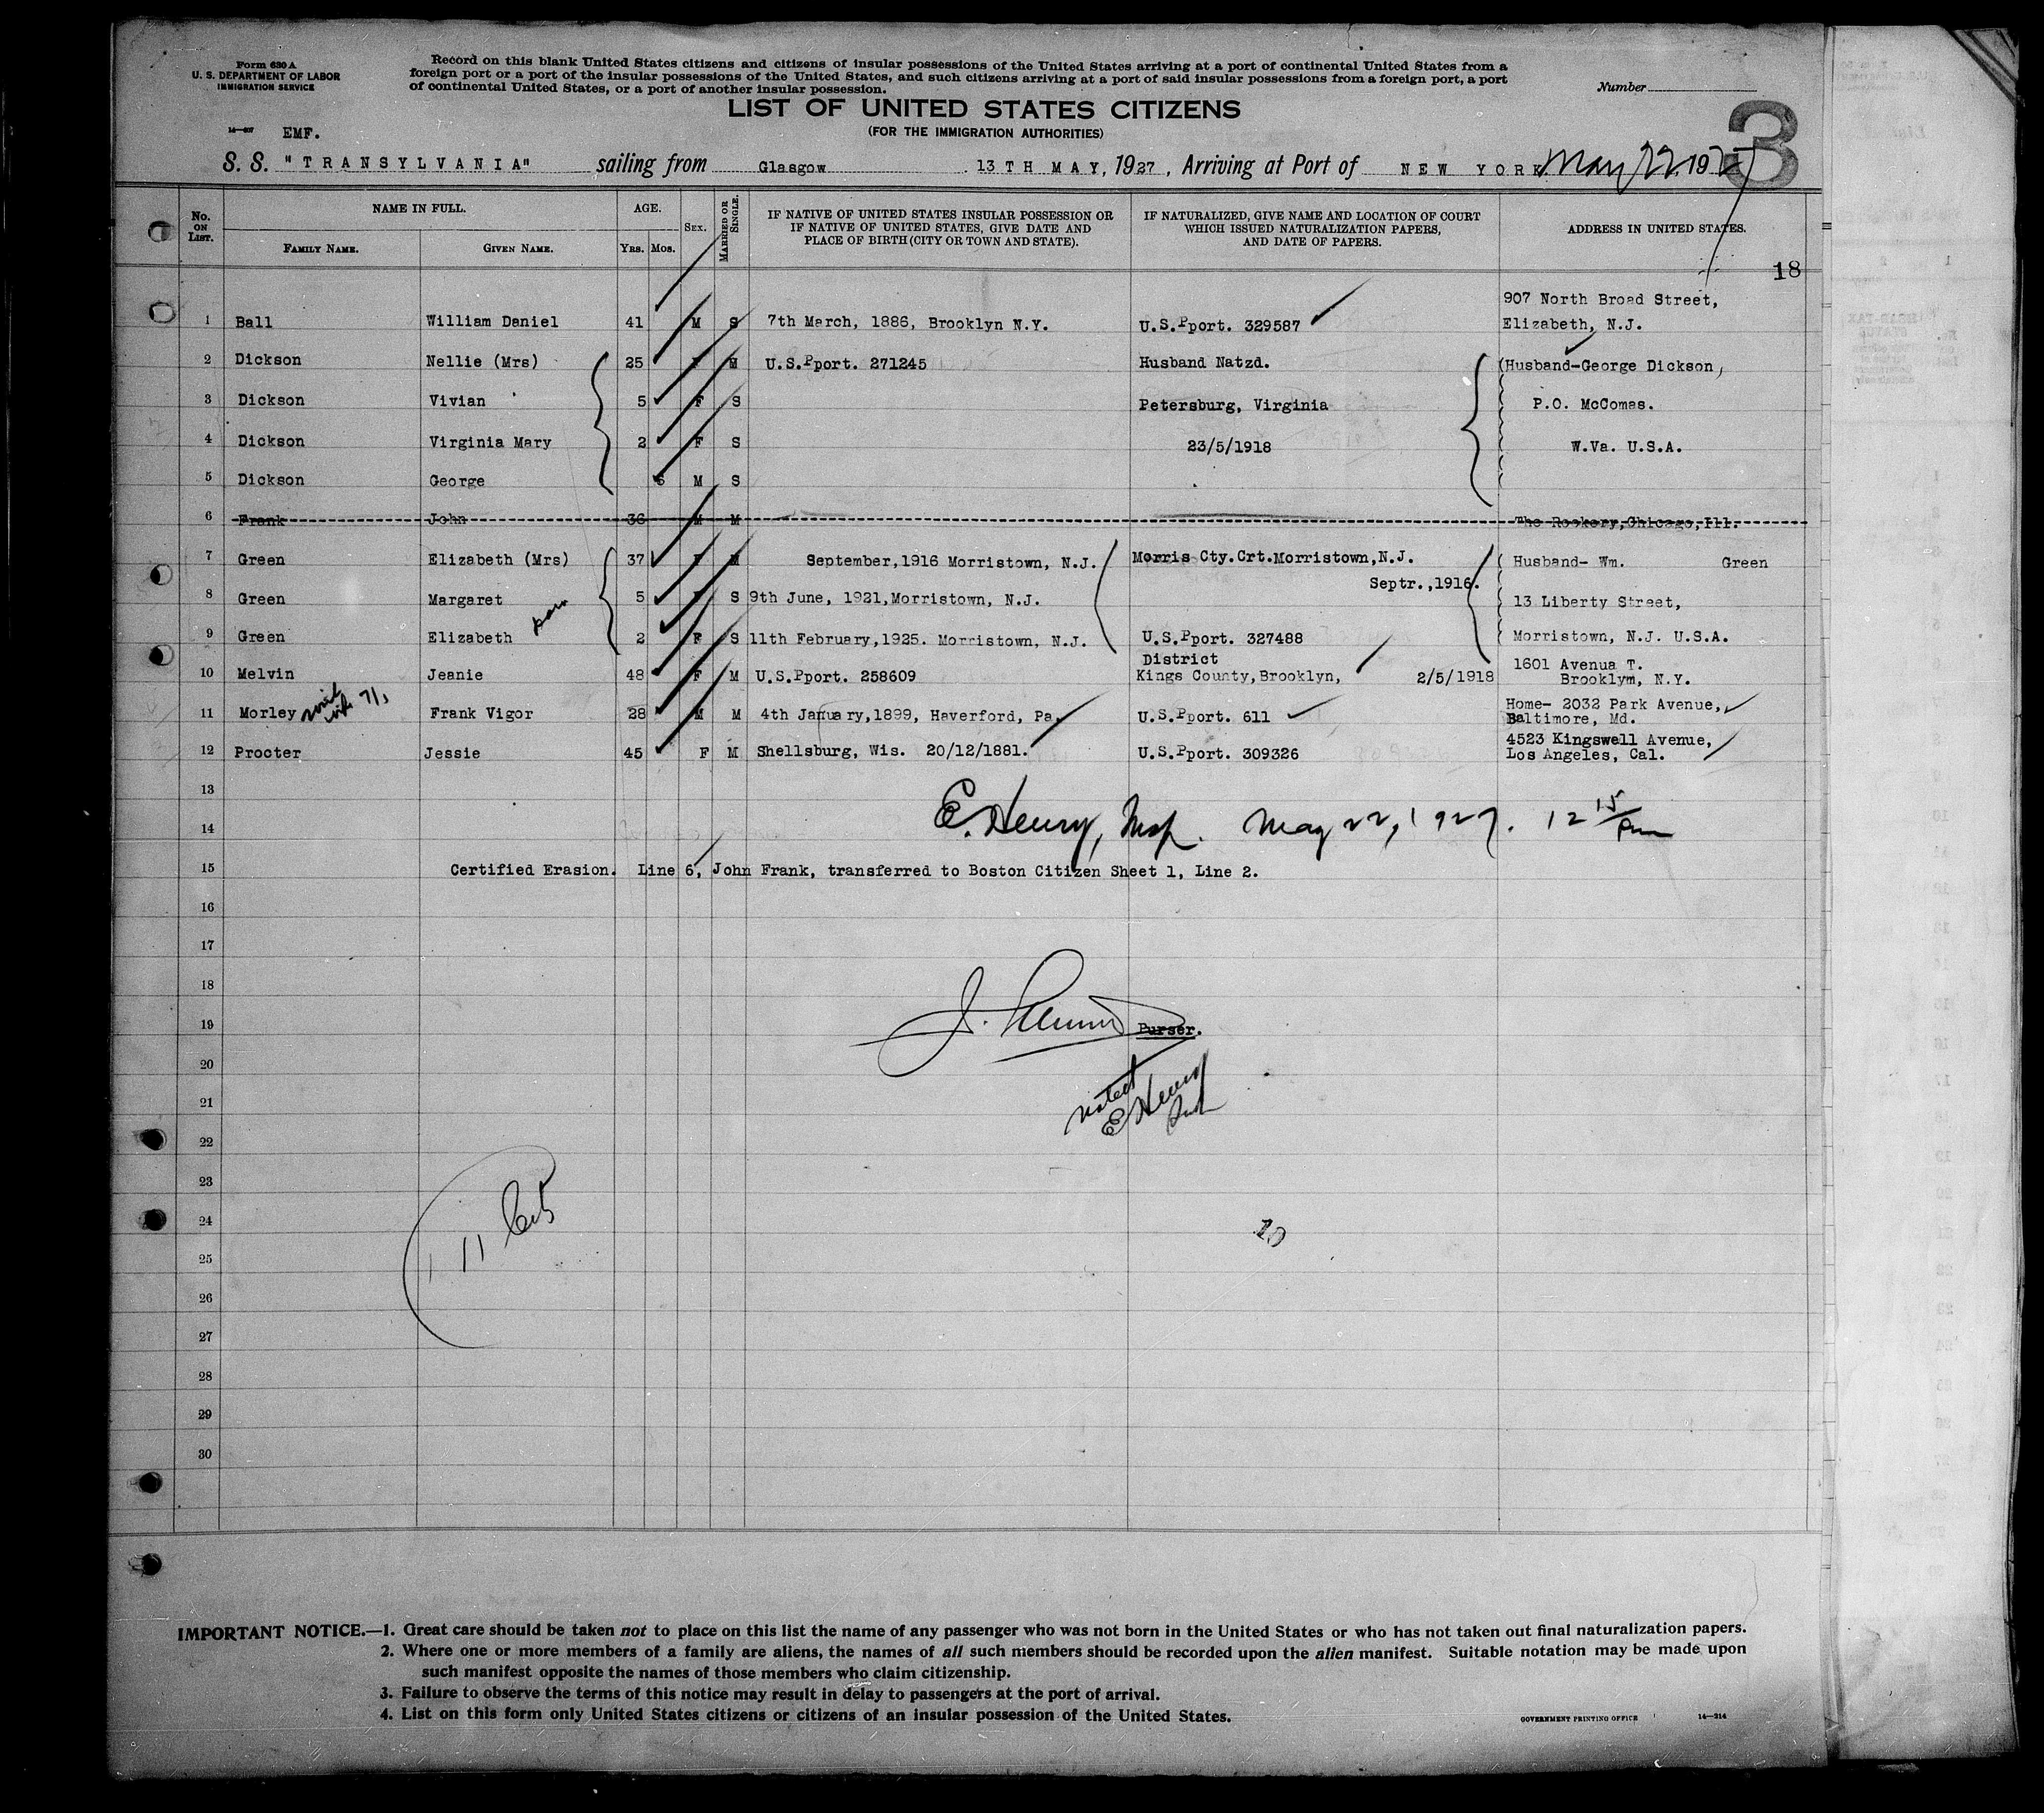 Form 630 A
U. S. DEPARTMENT OF LABOR
IMMIGRATION SERVICE
Record on this blank United States citizens and citizens of insular possessions of the United States arriving at a port of continental United States from a
foreign port or a port of the insular possessions of the United States, and such citizens arriving at a port of said insular possessions from a foreign port, a port
of continental United States, or a port of another insular possession.
Number
LIST OF UNITED STATES CITIZENS
(FOR THE IMMIGRATION AUTHORITIES)
3
EMF.
S. S. "TRANSYLVANIA" sailing from Glasgow 13TH MAY, 1927, Arriving at Port of NEW YORK May 22, 1927
No. ON LIST. NAME IN FULL. FAMILY NAME. GIVEN NAME. AGE. YRS. MOS. SEX. MARRIED OR SINGLE. IF NATIVE OF UNITED STATES INSULAR POSSESSION OR IF NATIVE OF UNITED STATES, GIVE DATE AND PLACE OF BIRTH (CITY OR TOWN AND STATE). IF NATURALIZED, GIVE NAME AND LOCATION OF COURT WHICH ISSUED NATURALIZATION PAPERS, AND DATE OF PAPERS. ADDRESS IN UNITED STATES.
18
907 North Broad Street,
1 Ball William Daniel 41 M S 7th March, 1886, Brooklyn N.Y. U.S.Pport. 329587 Elizabeth, N.J.
2 Dickson Nellie (Mrs) 25 F M U.S.Pport. 271245 Husband Natzd. (Husband-George Dickson,
3 Dickson Vivian 5 F S Petersburg, Virginia P.O. McComas.
4 Dickson Virginia Mary 2 F S 23/5/1918 W.Va. U.S.A.
5 Dickson George 6 M S
6 Frank John 36 M M The Rookery, Chicago, Ill.
7 Green Elizabeth (Mrs) 37 F M September, 1916 Morristown, N.J. Morris Cty. Crt. Morristown, N.J. Husband- Wm. Green
Septr., 1916.
8 Green Margaret 5 F S 9th June, 1921, Morristown, N.J. 13 Liberty Street,
9 Green Elizabeth 2 F S 11th February, 1925. Morristown, N.J. U.S.Pport. 327488 Morristown, N.J. U.S.A.
District 1601 Avenua T.
10 Melvin Jeanie 48 F M U.S.Pport. 258609 Kings County, Brooklyn, 2/5/1918 Brooklym, N.Y.
Home- 2032 Park Avenue,
11 Morley Frank Vigor 28 M M 4th January, 1899, Haverford, Pa. U.S.Pport. 611 Baltimore, Md.
4523 Kingswell Avenue,
12 Procter Jessie 45 F M Shellsburg, Wis. 20/12/1881. U.S.Pport. 309326 Los Angeles, Cal.
13
E. Henry, Insp. May 22, 1927. 12 15/pm
14
15 Certified Erasion. Line 6, John Frank, transferred to Boston Citizen Sheet 1, Line 2.
16
17
18
19 Purser.
20
noted
21 E Henry
22
23
11 Cits
24
10
25
26
27
28
29
30
IMPORTANT NOTICE.—1. Great care should be taken not to place on this list the name of any passenger who was not born in the United States or who has not taken out final naturalization papers.
2. Where one or more members of a family are aliens, the names of all such members should be recorded upon the alien manifest. Suitable notation may be made upon
such manifest opposite the names of those members who claim citizenship.
3. Failure to observe the terms of this notice may result in delay to passengers at the port of arrival.
4. List on this form only United States citizens or citizens of an insular possession of the United States.
GOVERNMENT PRINTING OFFICE 14—214